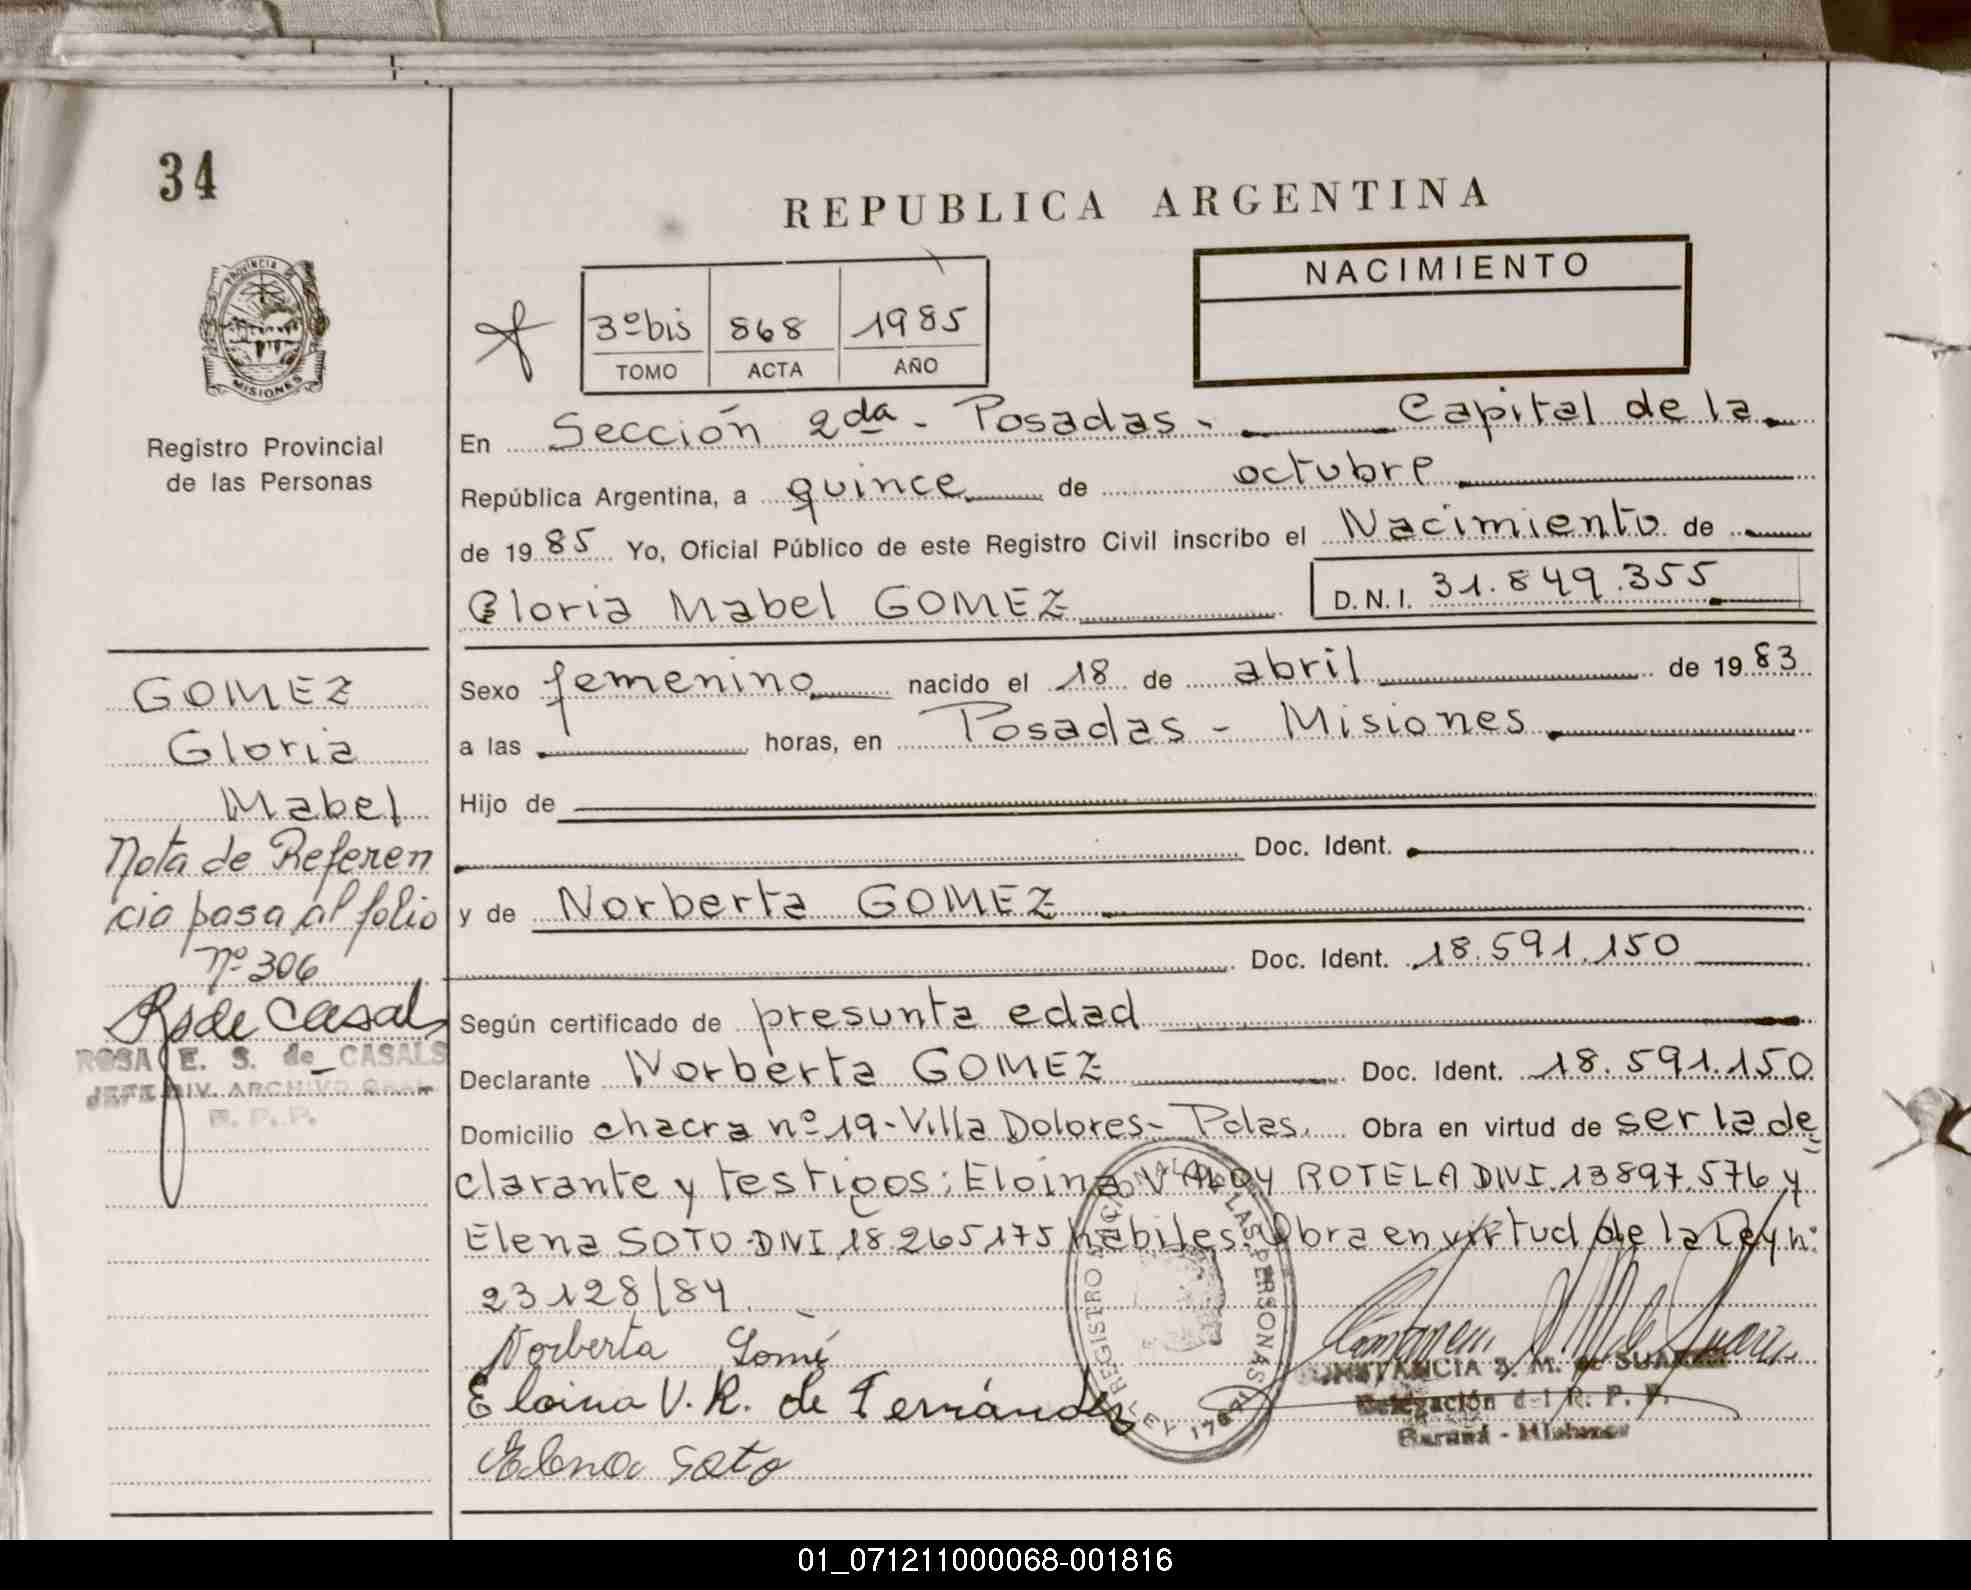 34
REPUBLICA ARGENTINA
PROVINCIA DE
MISIONES
NACIMIENTO
3º bis 868 1985
TOMO ACTA AÑO
Registro Provincial
de las Personas
En Sección 2da - Posadas - Capital de la
República Argentina, a quince de octubre
de 1985 Yo, Oficial Público de este Registro Civil inscribo el Nacimiento de
Gloria Mabel GOMEZ D.N.I. 31.849.355
GOMEZ
Gloria
Mabel
Nota de Referen
cia pasa al folio
nº 306
R S de Casals
ROSA E. S. de CASALS
JEFE DIV. ARCHIVO GRAL
R. P. P.
Sexo femenino nacido el 18 de abril de 1983
a las horas, en Posadas - Misiones
Hijo de
Doc. Ident.
y de Norberta GOMEZ
Doc. Ident. 18.591.150
Según certificado de presunta edad
Declarante Norberta GOMEZ Doc. Ident. 18.591.150
Domicilio chacra nº 19 - Villa Dolores - Pdas. Obra en virtud de ser la de
clarante y testigos: Eloina V ALOY ROTELA DNI. 13897.576 y
Elena SOTO DNI 18.265175 hábiles. Obra en virtud de la Ley nº
23128/84
Norberta Gomé
Eloina V. R. de Fernández
Elena Soto
REGISTRO NACIONAL DE LAS PERSONAS
LEY 17671
CONSTANCIA A. M. de SUAREZ
Delegación del R. P. P.
Misiones
01_071211000068-001816